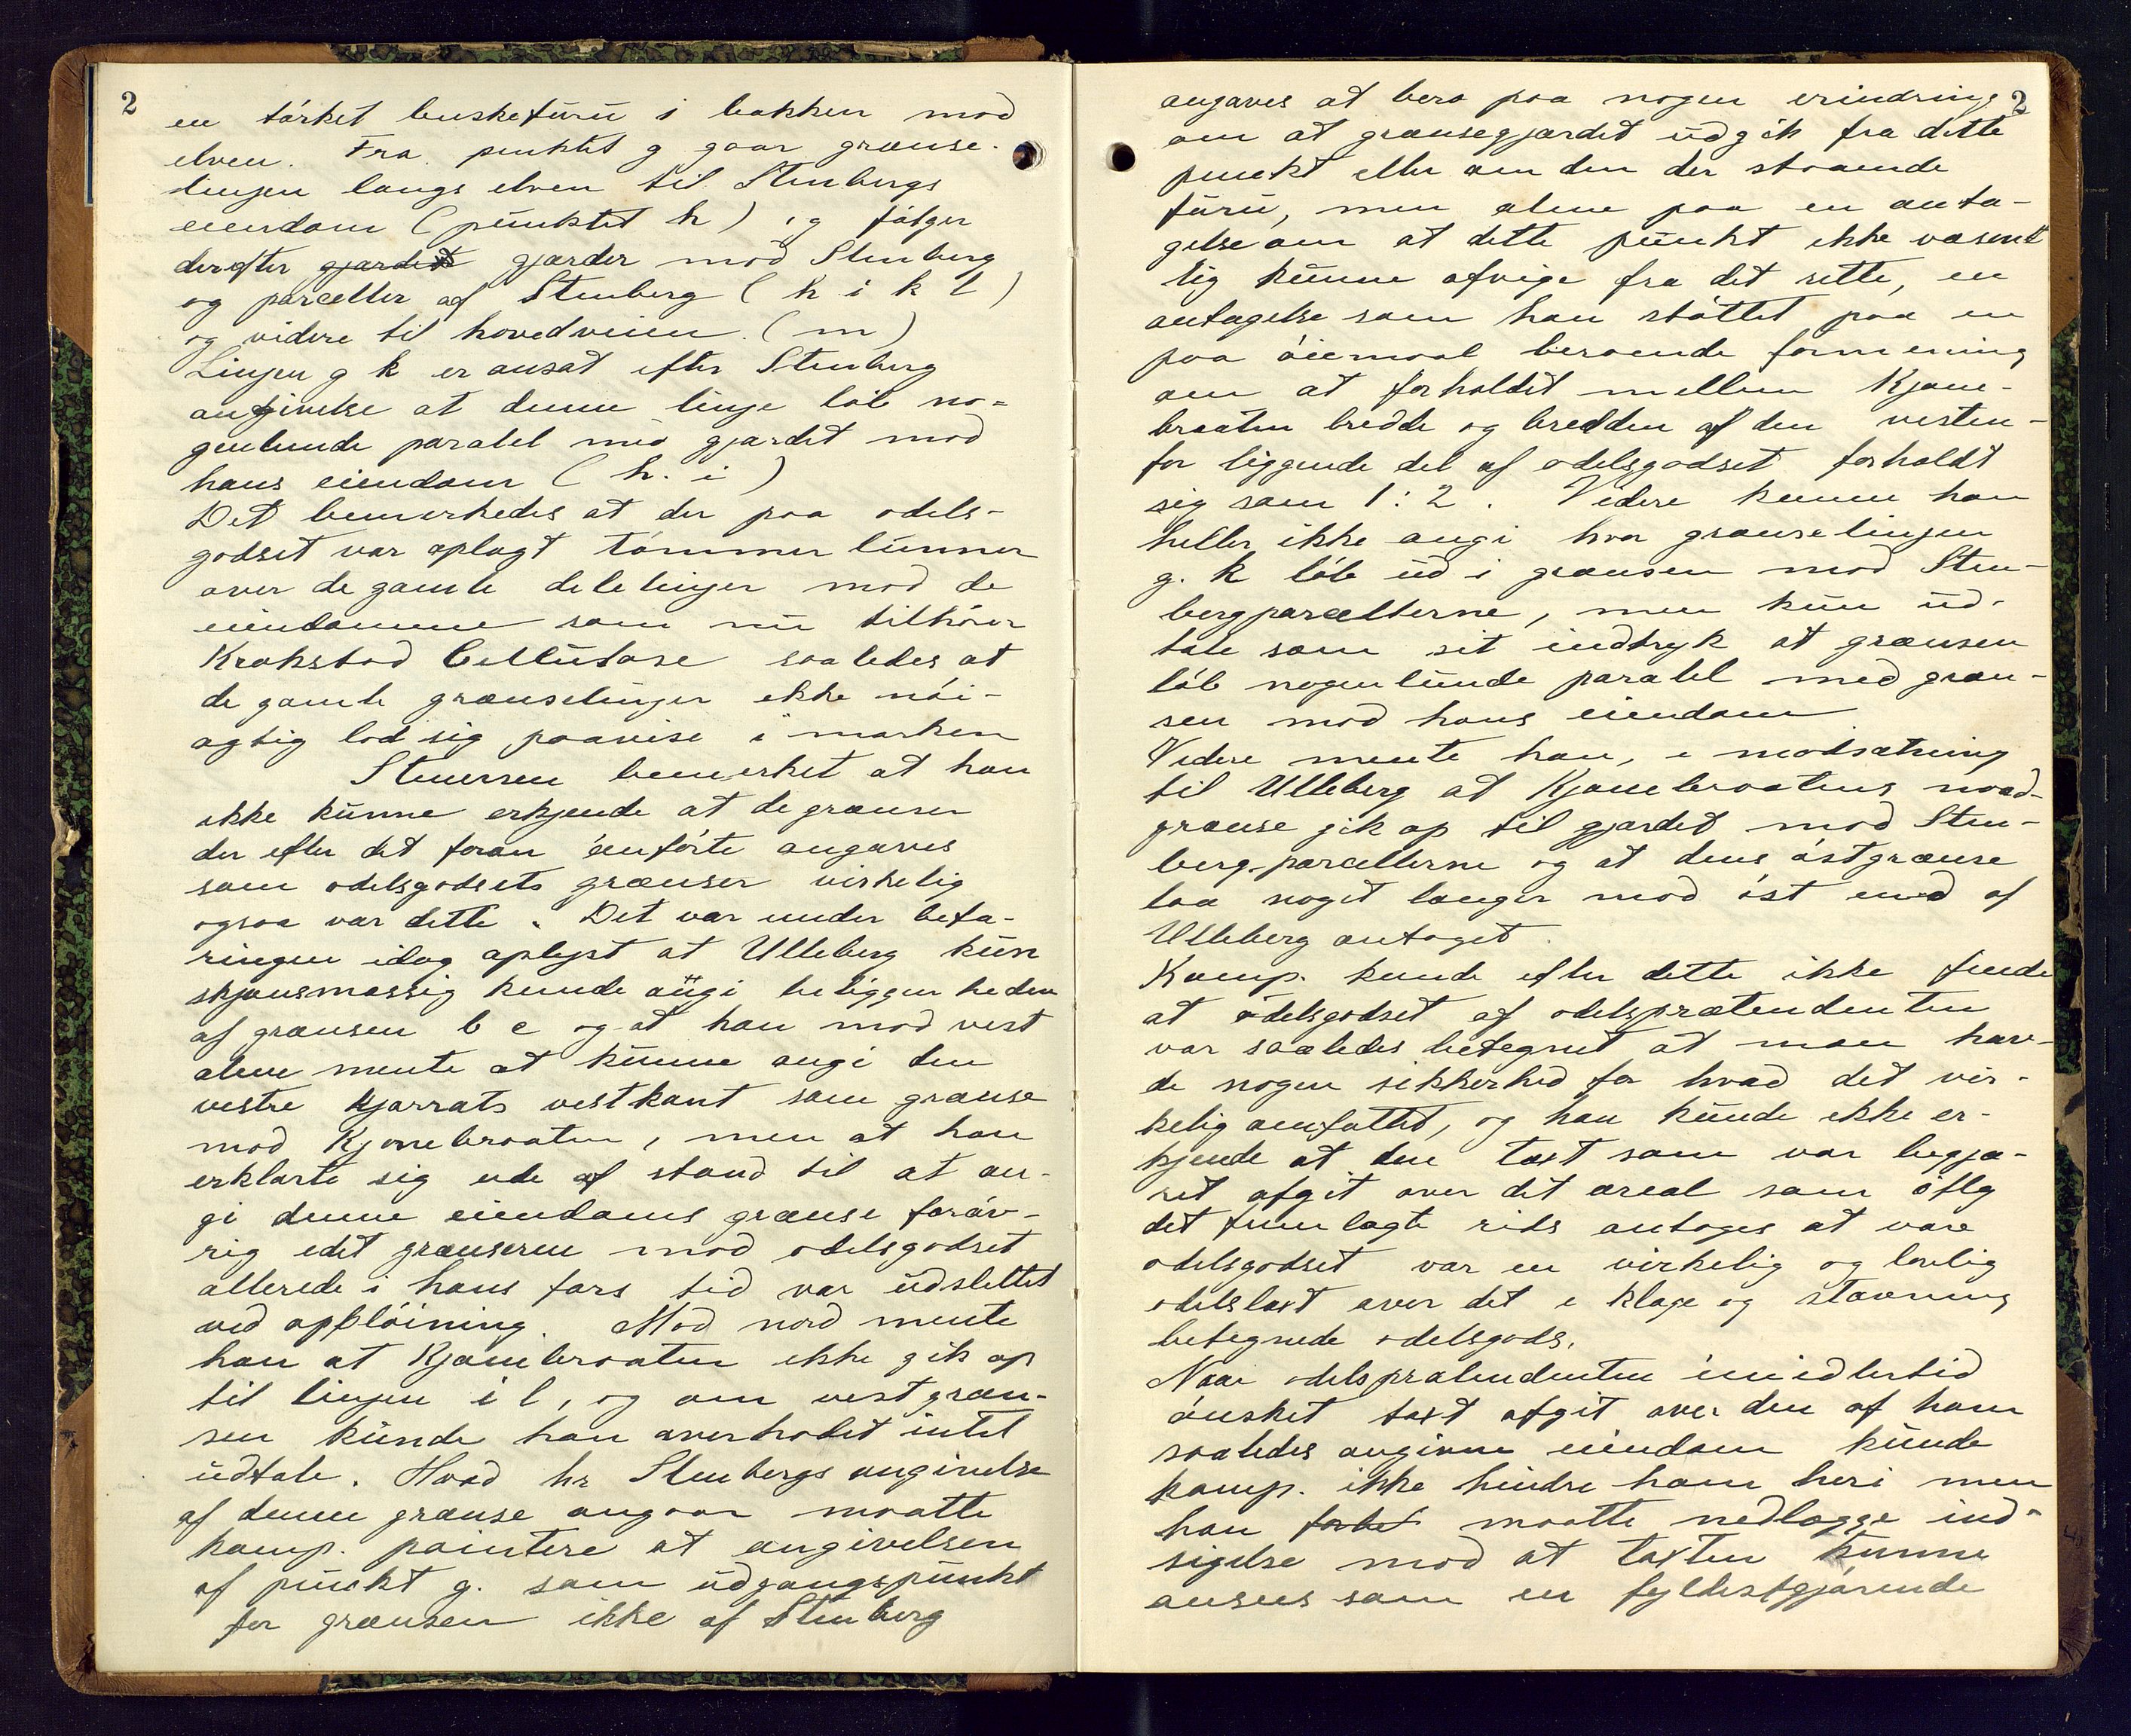 2
en tórket buskefuru i bakken mod
elven. Fra punktet g gaar grænse-
linjen langs elven til Stenbergs
eiendom (punktet h) og følger
derefter gjærdet gjærder mod Stenberg
og parceller af Stenberg (h i k l)
og videre til hovedveien. (m)
Linjen g k er ansat efter Stenberg
angivelse at denne linje löb no-
genlunde paralel med gjærdet mod
hans eiendom (h. i)
Det bemerkedes at der paa odels-
godset var oplagt tömmer lunner
over de gamle delelinjer mod de
eiendomme som nu tilhörer
Krokstad Cellulose saaledes at
de gamle grænselinjer ikke nöi-
agtig lod sig paavise i marken
Stenersen bemerket at han
ikke kunne erkjende at de grænser
der efter det foran anförte angaves
som odelsgodsets grænser virkelig
ogsaa var dette. Det var under befa-
ringen idag oplyst at Ulleberg kun
skjönsmæssig kunde angi beliggenheden
af grænsen b c og at han mod vest
alene mente at kunne angi den
vestre kjærrats vestkant som grænse
mod Kjonebraaten, men at han
erklærte sig ude af stand til at an-
gi denne eiendoms grænse foröv-
rig idet grænserne mod odelsgodset
allerede i hans fars tid var udslettet
ved oppløining. Mod nord mente
han at Kjonebraaten ikke gik op
til linjen i l, og om vestgræn-
sen kunde han overhodet intet
udtale. Hvad hr Stenbergs angivelse
af denne grænse angaar maatte
komp. pointere at angivelsen
af punkt g. som udgangspunkt
for grænsen ikke af Stenberg
2
angaves at bero paa nogen erindring
om at grænsegjærdet udgik fra dette
punkt eller om den der staaende
furu, men alene paa en anta-
gelse om at dette punkt ikke væsent
lig kunne afvige fra det rette, en
antagelse som han støttet paa en
paa öiemaal beroende formening
om at forholdet mellem Kjone-
braaten bredde og bredden af den vesten-
for liggende del af odelsgodset forholdt
sig som 1:2. Videre kunne han
heller ikke angi hvor grænselinjen
g. k löb ud i grænsen mod Sten-
bergparcellerne, men kun ud-
tale som sit indtryk at grænsen
löb nogenlunde paralel med græn-
sen mod hans eiendom
Videre mente han, i modsætning
til Ulleberg at Kjonebraatens nord-
grænse gik op til gjærdet mod Sten-
berg-parcellerne og at dens östgrænse
laa noget længer mod öst end af
Ulleberg antaget.
Komp. kunde efter dette ikke finde
at odelsgodset af odelsprætendenten
var saaledes betegnet at man hav-
de nogen sikkerhed for hvad det vir-
kelig omfattet, og han kunde ikke er-
kjende at den taxt som var begjæ-
ret afgit over det areal som iflg
det fremlagte rids antoges at være
odelsgodset var en virkelig og lovlig
odelstaxt over det i klage og stævning
betegnede odelsgods.
Naar odelsprætendenten imidlertid
ønsket taxt afgit over den af ham
saaledes angivne eiendom kunde
komp. ikke hindre ham heri men
han forbe maatte nedlægge ind-
sigelse mod at taxten kunne
ansees som en fyldestgjørende